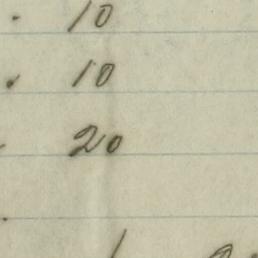 . 10
. 10
20